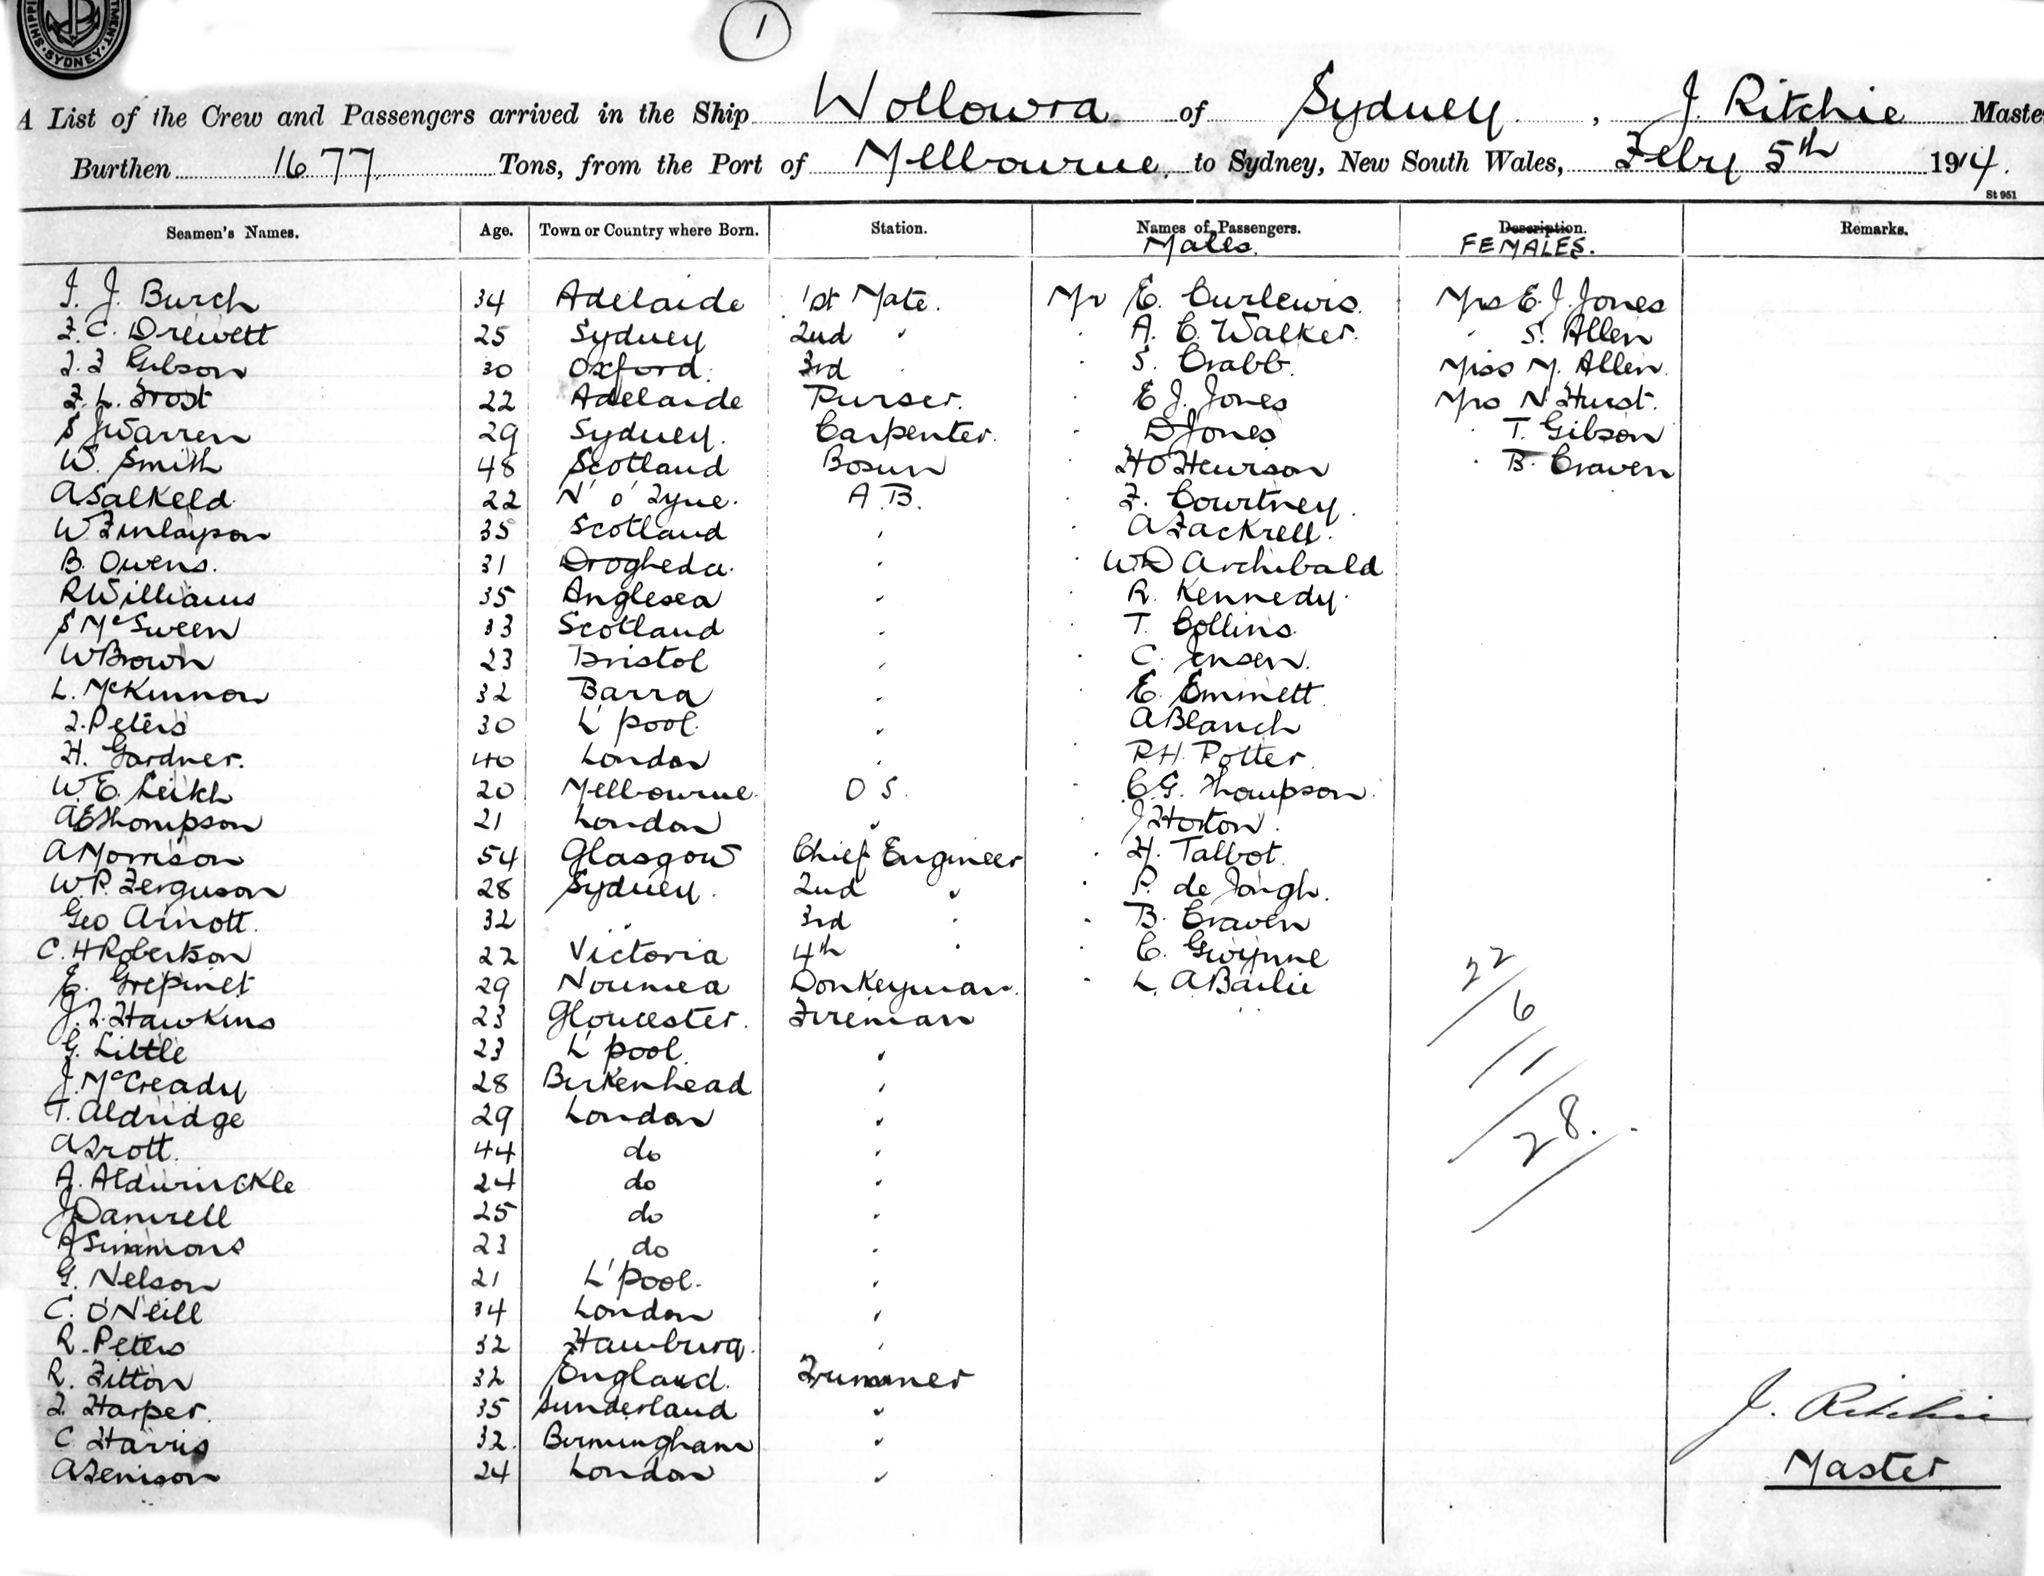 SHIPPI
RTMENT. SYDNEY
1
A List of the Crew and Passengers arrived in the Ship Wollowra of Sydney, J. Ritchie Maste
Burthen 1677 Tons, from the Port of Mellbourne, to Sydney, New South Wales, Feby 5th 1914.
St 951
Seamen's Names. Age. Town or Country where Born. Station. Names of Passengers. Description. Remarks.
Males. FEMALES.
I. J. Burch 34 Adelaide 1st Mate. Mr E. Curlewis. Mrs E. J. Jones
F. C. Drewett 25 Sydney 2nd " A. C. Walker. " S. Allen
J. F Gibson 30 Oxford. 3rd " S. Crabb. Miss M. Allen.
F. L. Frost 22 Adelaide Purser. E J. Jones Mrs N Hurst.
S J Warren 29 Sydney. Carpenter. D Jones " T. Gibson
W. Smith 48 Scotland Bosun H O Hewison " B. Craven
A Salkeld 22 N' o' Tyne. A.B. F. Courtney.
W Finlayson 35 Scotland " A Zackrell.
B. Owens. 31 Drogheda. " W D Archibald
R Williams 35 Anglesea " R. Kennedy.
S McSween 33 Scotland " T. Collins.
W Brown 23 Bristol " C. Jensen.
L. McKinnon 32 Barra " E. Emmett
J. Peters 30 L'pool. " A Blanch
H. Gardner. 40 London " R H. Potter
W. E. Leikh 20 Mellbourne. O S. C. G. Thompson.
A E Thompson 21 London " J Horton.
A Morrison 54 Glasgow Chief Engineer H. Talbot.
W P. Ferguson 28 Sydney. 2nd " P. de Jongh.
Geo Arnott. 32 " 3rd " B. Craven
C. H Robertson 22 Victoria 4th " C. Gwynne
E. Grepinet 29 Noumea Donkeyman. L. A Bailie
J. T. Hawkins 23 Gloucester. Fireman
G. Little 23 L'pool. "
J. McCready 28 Birkenhead "
T. Aldridge 29 London "
A Trott. 44 do "
A. Aldwinckle 24 do "
J Damrell 25 do "
A Simmons 23 do "
G. Nelson 21 L'pool. "
C. O'Neill 34 London "
R. Peters 32 Hamburg. "
R. Fitton 32 England. Trimmer
J. Harper. 35 Sunderland "
C Harris 32. Birmingham "
A Tenison 24 London "
22
6
28.
J. Ritchie
Master